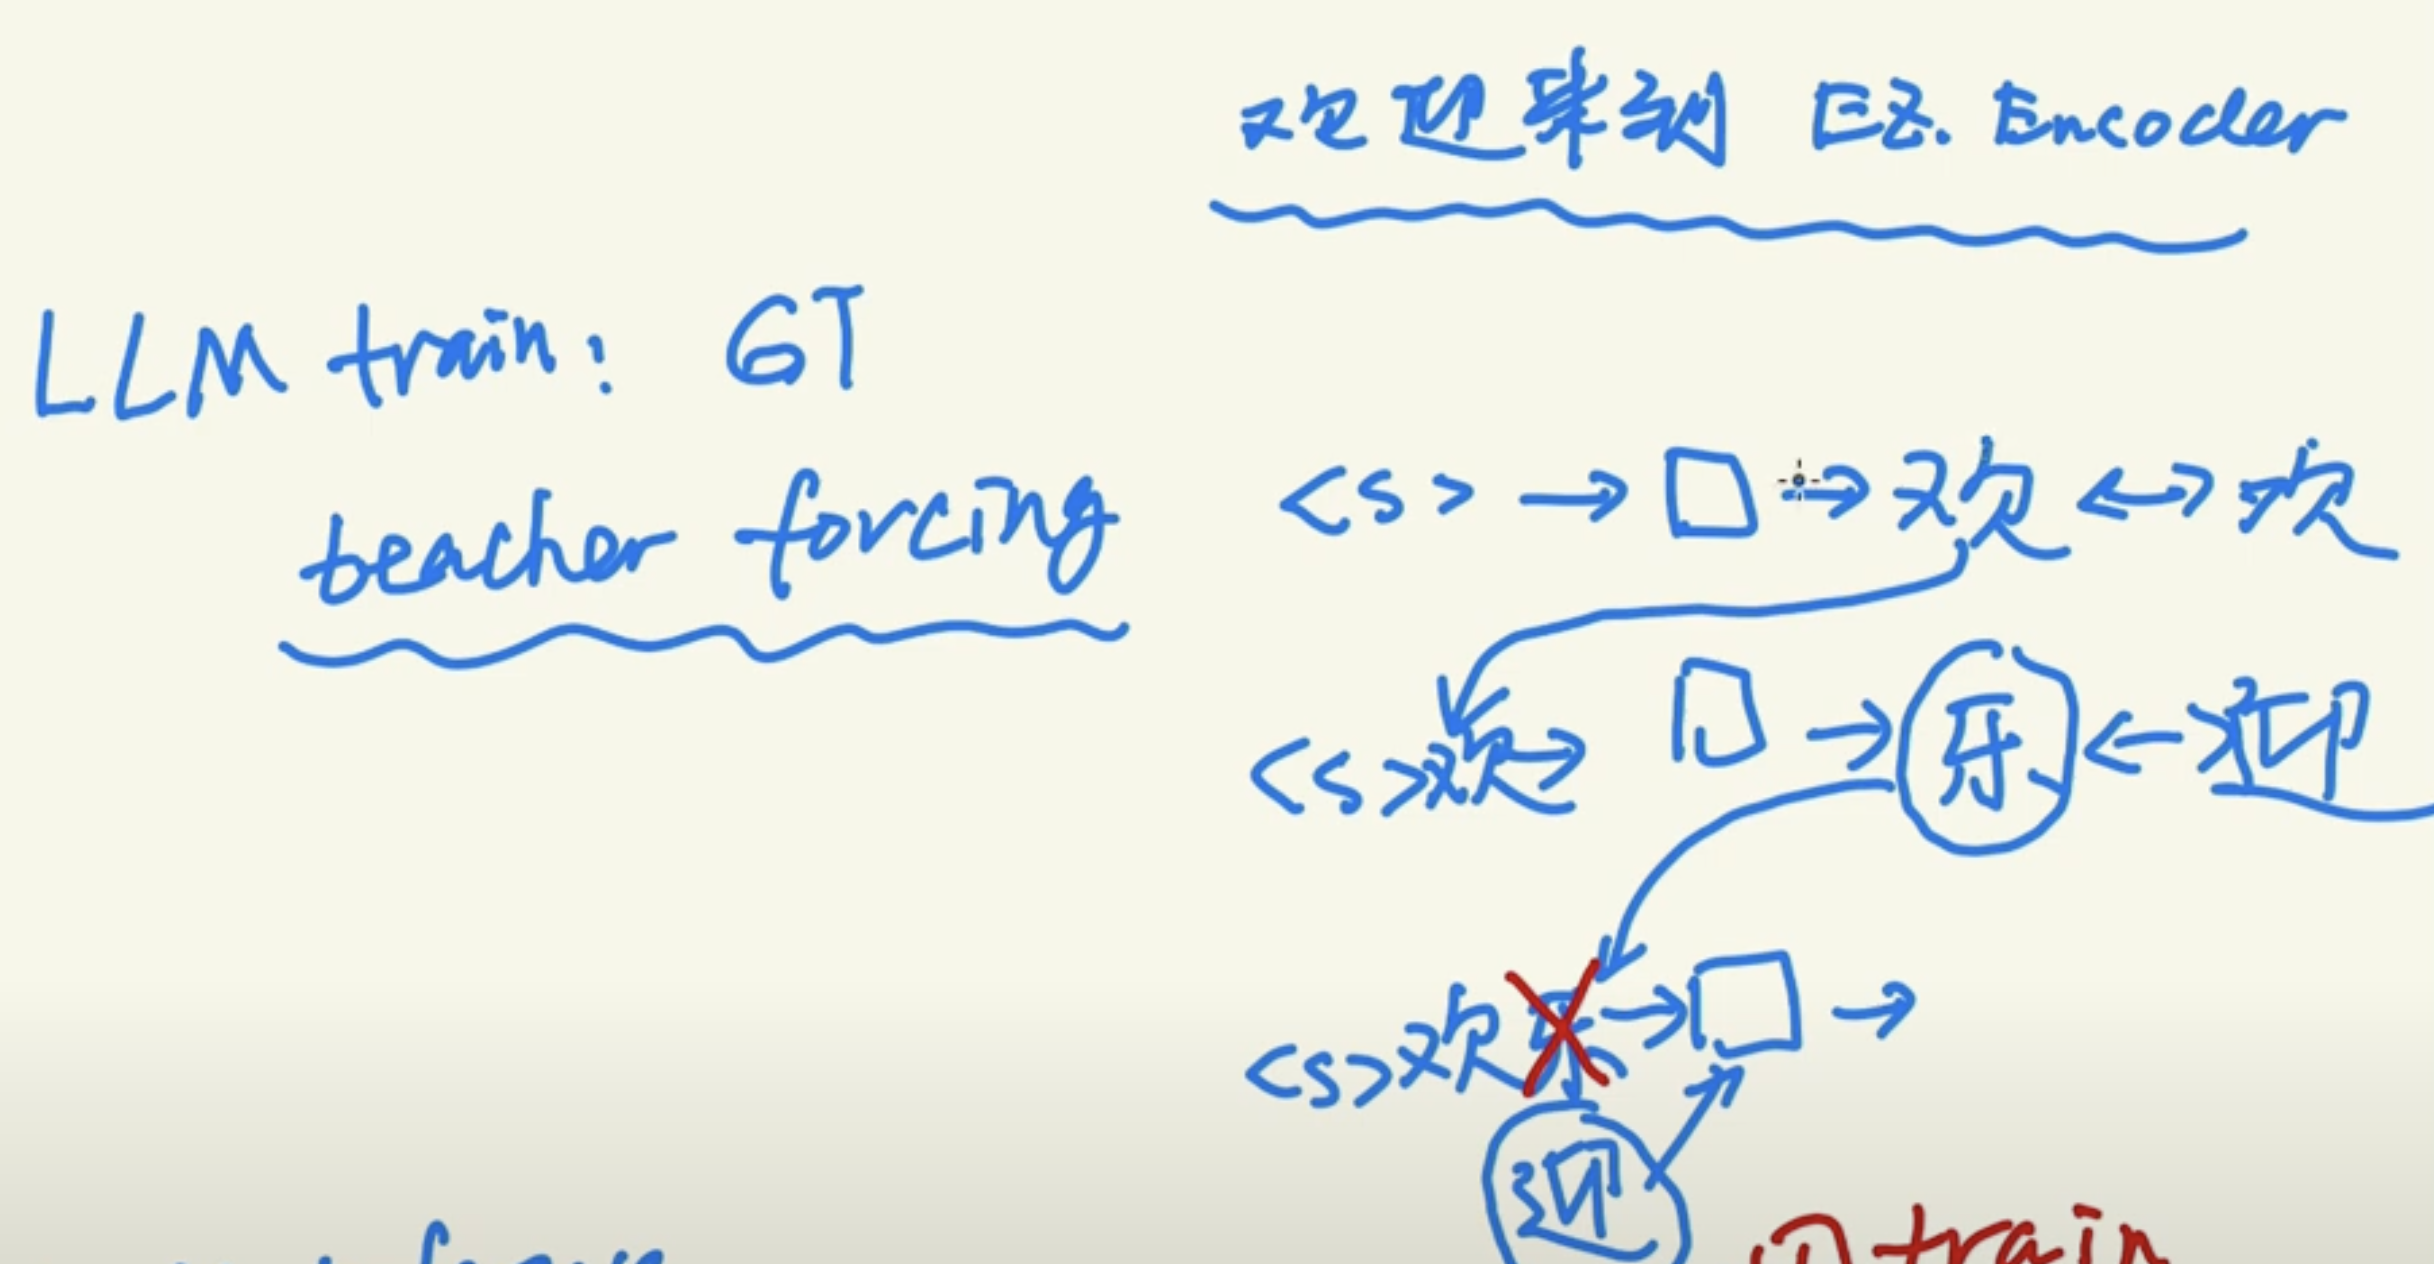 欢迎来到 EZ. Encoder
LLM train: GT
teacher forcing
<s> → □ → 欢 ↔ 欢
<s>欢 → □ → 乐 ↔ 迎
<s>欢乐 → □ →
迎
① train